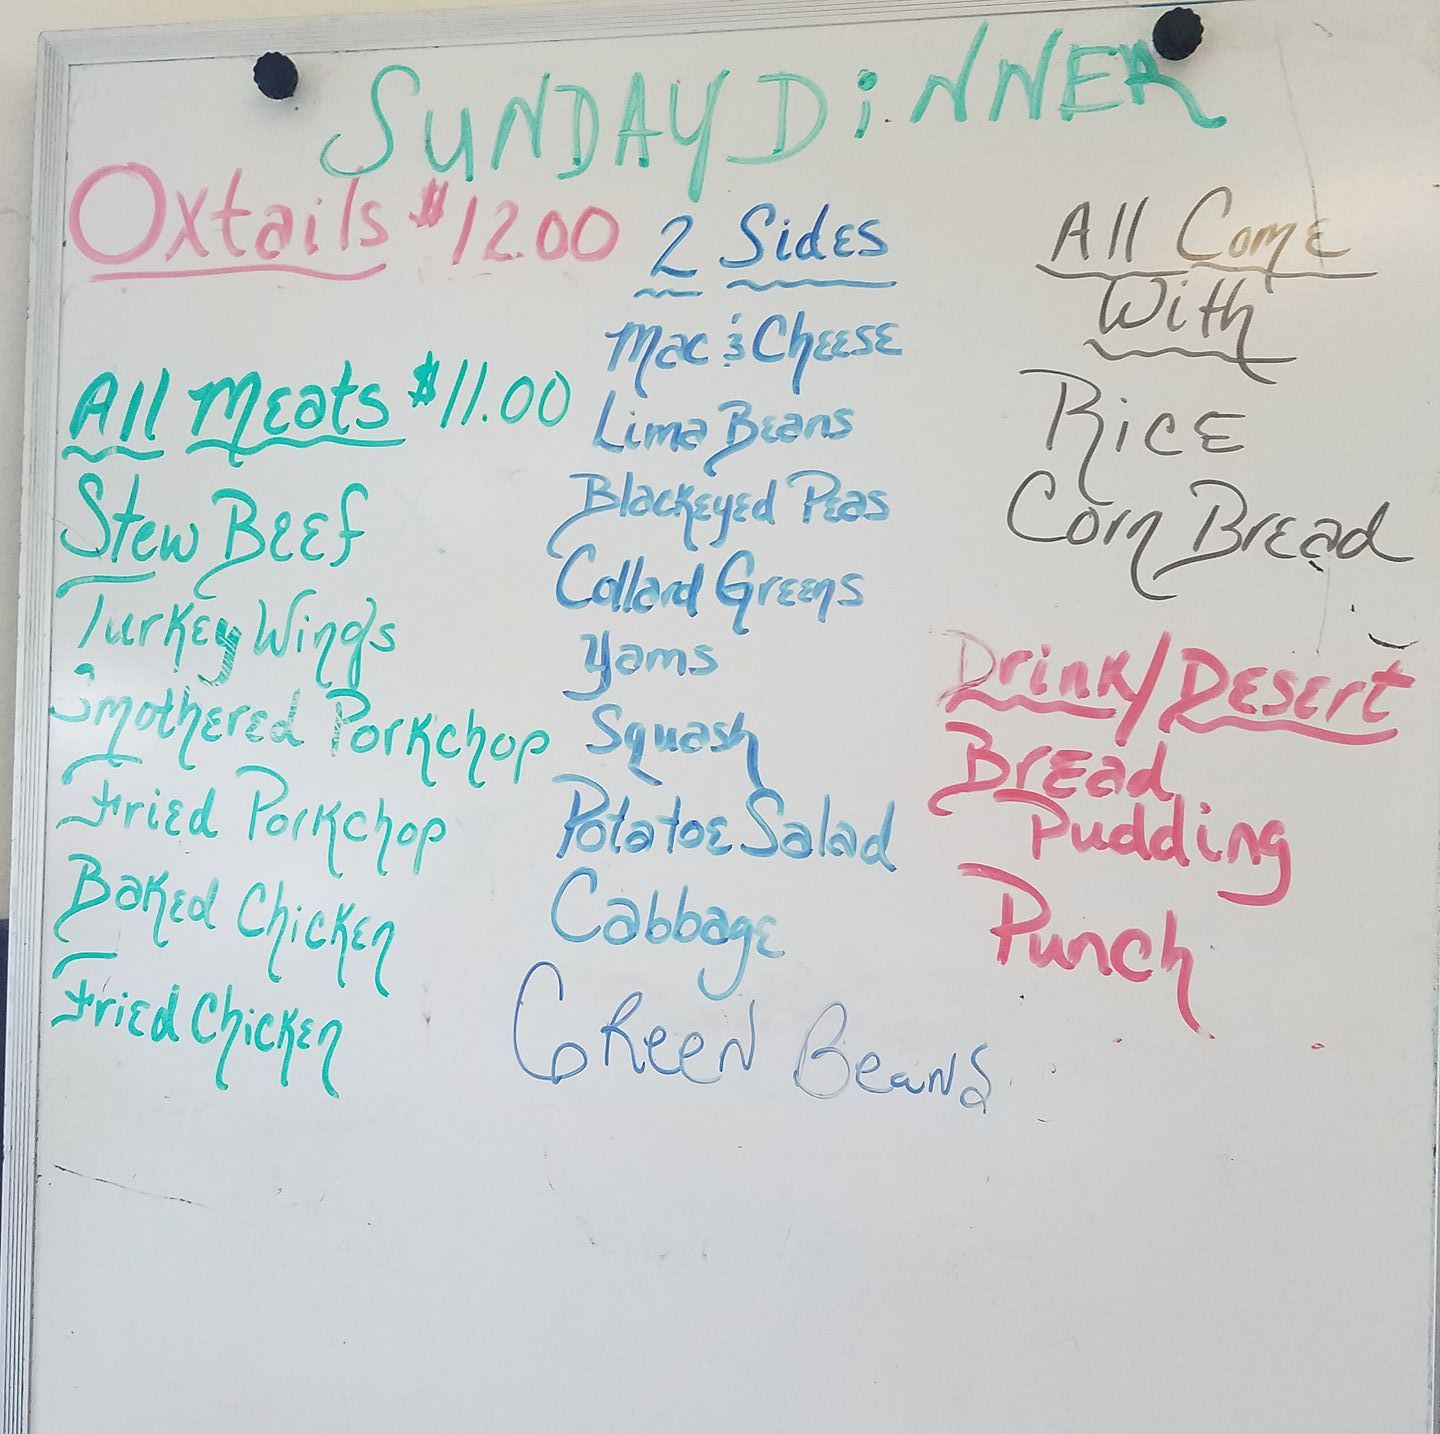 SUNDAY DiNNER
Oxtails $12.00
All Meats $11.00
Stew Beef
Turkey Wings
Smothered Porkchop
Fried Porkchop
Baked Chicken
Fried Chicken
2 Sides
Mac & Cheese
Lima Beans
Blackeyed Peas
Collard Greens
Yams
Squash
Potatoe Salad
Cabbage
GReeN BeaNS
All Come
With
Rice
Corn Bread
Drink/Desert
Bread
Pudding
Punch